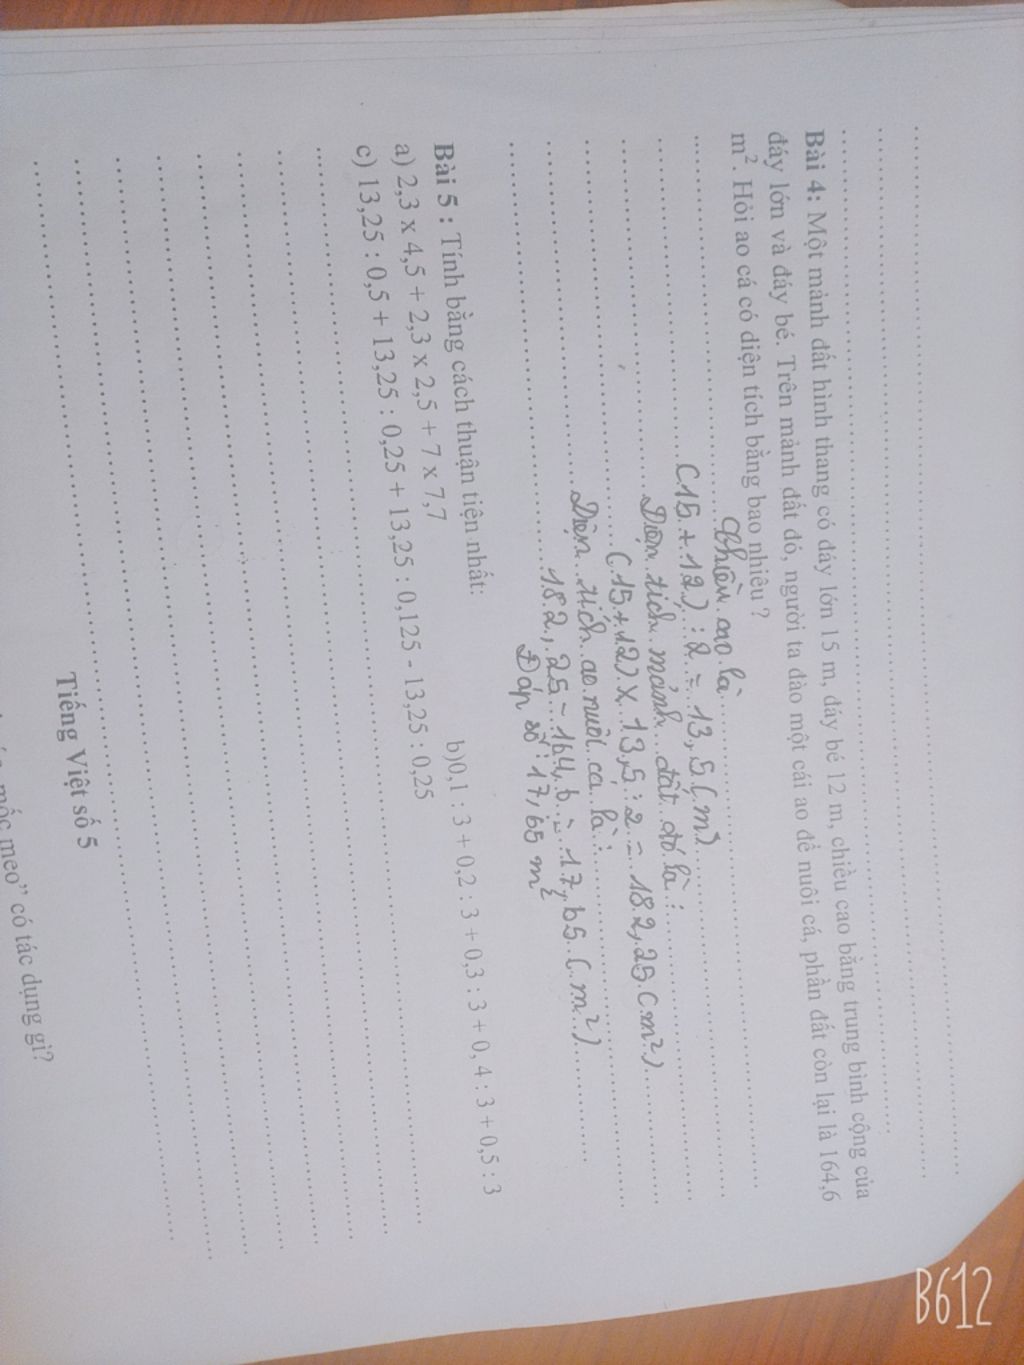 Bài 4: Một mảnh đất hình thang có đáy lớn 15 m, đáy bé 12 m, chiều cao bằng trung bình cộng của
đáy lớn và đáy bé. Trên mảnh đất đó, người ta đào một cái ao để nuôi cá, phần đất còn lại là 164,6
m². Hỏi ao cá có diện tích bằng bao nhiêu ?
Chiều cao là
(15 + 12) : 2 = 13,5 (m)
Diện tích mảnh đất đó là :
(15 + 12) x 13,5 : 2 = 182,25 (m²)
Diện tích ao nuôi cá là :
182,25 - 164,6 = 17,65 (m²)
Đáp số : 17,65 m²
Bài 5 : Tính bằng cách thuận tiện nhất:
a) 2,3 x 4,5 + 2,3 x 2,5 + 7 x 7,7 b)0,1 : 3 + 0,2 : 3 + 0,3 : 3 + 0, 4 : 3 + 0,5 : 3
c) 13,25 : 0,5 + 13,25 : 0,25 + 13,25 : 0,125 - 13,25 : 0,25
Tiếng Việt số 5
mốc meo” có tác dụng gì?
B612